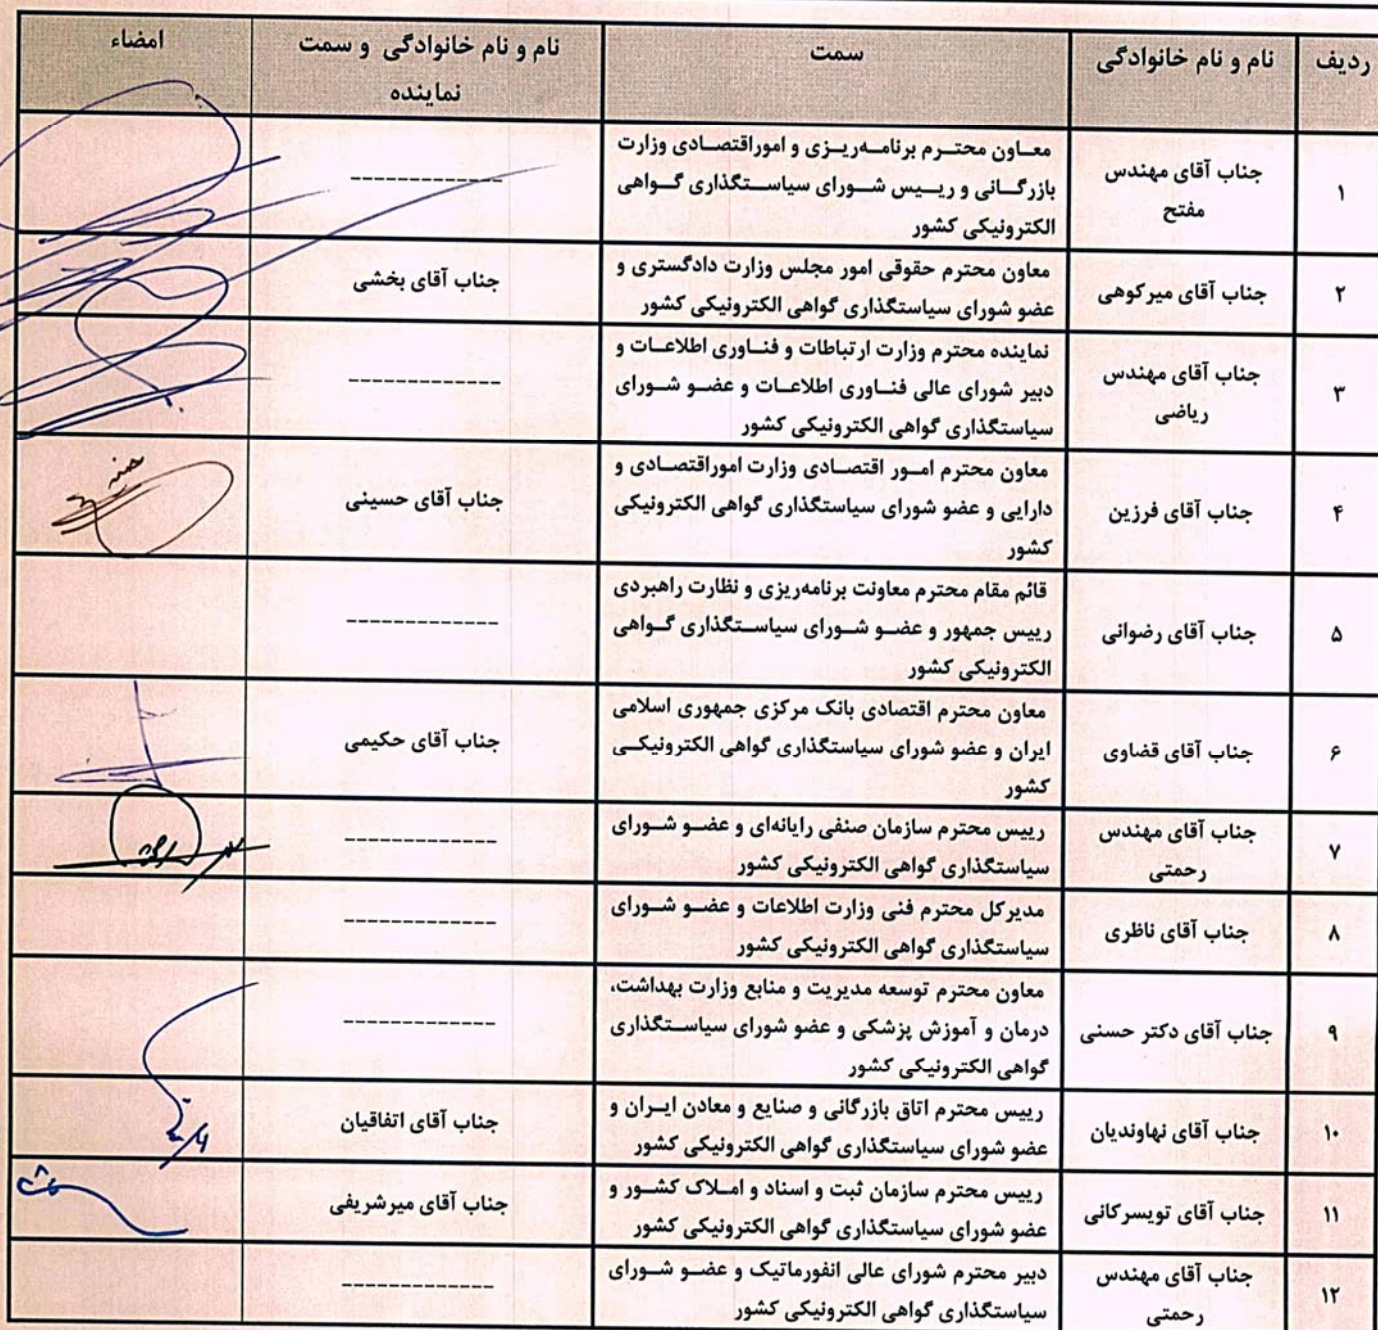 ردیف
نام و نام خانوادگی
سمت
نام و نام خانوادگی و سمت
نماینده
امضاء
۱
جناب آقای مهندس
مفتح
معاون محترم برنامه‌ریزی و اموراقتصادی وزارت
بازرگانی و رییس شورای سیاستگذاری گواهی
الکترونیکی کشور
-------------
۲
جناب آقای میرکوهی
معاون محترم حقوقی امور مجلس وزارت دادگستری و
عضو شورای سیاستگذاری گواهی الکترونیکی کشور
جناب آقای بخشی
۳
جناب آقای مهندس
ریاضی
نماینده محترم وزارت ارتباطات و فناوری اطلاعات و
دبیر شورای عالی فناوری اطلاعات و عضو شورای
سیاستگذاری گواهی الکترونیکی کشور
-------------
۴
جناب آقای فرزین
معاون محترم امور اقتصادی وزارت اموراقتصادی و
دارایی و عضو شورای سیاستگذاری گواهی الکترونیکی
کشور
جناب آقای حسینی
۵
جناب آقای رضوانی
قائم مقام محترم معاونت برنامه‌ریزی و نظارت راهبردی
رییس جمهور و عضو شورای سیاستگذاری گواهی
الکترونیکی کشور
-------------
۶
جناب آقای قضاوی
معاون محترم اقتصادی بانک مرکزی جمهوری اسلامی
ایران و عضو شورای سیاستگذاری گواهی الکترونیکی
کشور
جناب آقای حکیمی
۷
جناب آقای مهندس
رحمتی
رییس محترم سازمان صنفی رایانه‌ای و عضو شورای
سیاستگذاری گواهی الکترونیکی کشور
-------------
۸
جناب آقای ناظری
مدیرکل محترم فنی وزارت اطلاعات و عضو شورای
سیاستگذاری گواهی الکترونیکی کشور
-------------
۹
جناب آقای دکتر حسنی
معاون محترم توسعه مدیریت و منابع وزارت بهداشت،
درمان و آموزش پزشکی و عضو شورای سیاستگذاری
گواهی الکترونیکی کشور
-------------
۱۰
جناب آقای نهاوندیان
رییس محترم اتاق بازرگانی و صنایع و معادن ایران و
عضو شورای سیاستگذاری گواهی الکترونیکی کشور
جناب آقای اتفاقیان
۱۱
جناب آقای تویسرکانی
رییس محترم سازمان ثبت و اسناد و املاک کشور و
عضو شورای سیاستگذاری گواهی الکترونیکی کشور
جناب آقای میرشریفی
۱۲
جناب آقای مهندس
رحمتی
دبیر محترم شورای عالی انفورماتیک و عضو شورای
سیاستگذاری گواهی الکترونیکی کشور
-------------